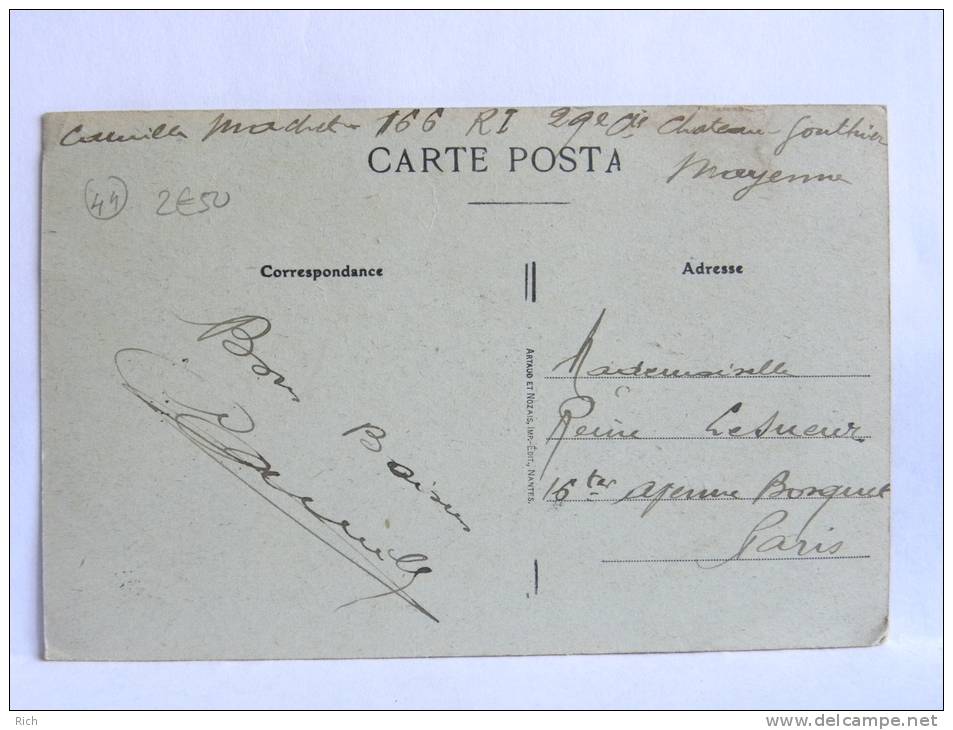 Camille Machet 166 RI 29e Cie Chateau-Gonthier
Mayenne
CARTE POSTA
44 2€50
Correspondance
Adresse
Bons
Baisers
Camille
ARTAUD ET NOZAIS, IMP.-ÉDIT., NANTES.
Mademoiselle
Reine Lesueur
16 ter avenue Bosquet
Paris
Rich
www.delcampe.net